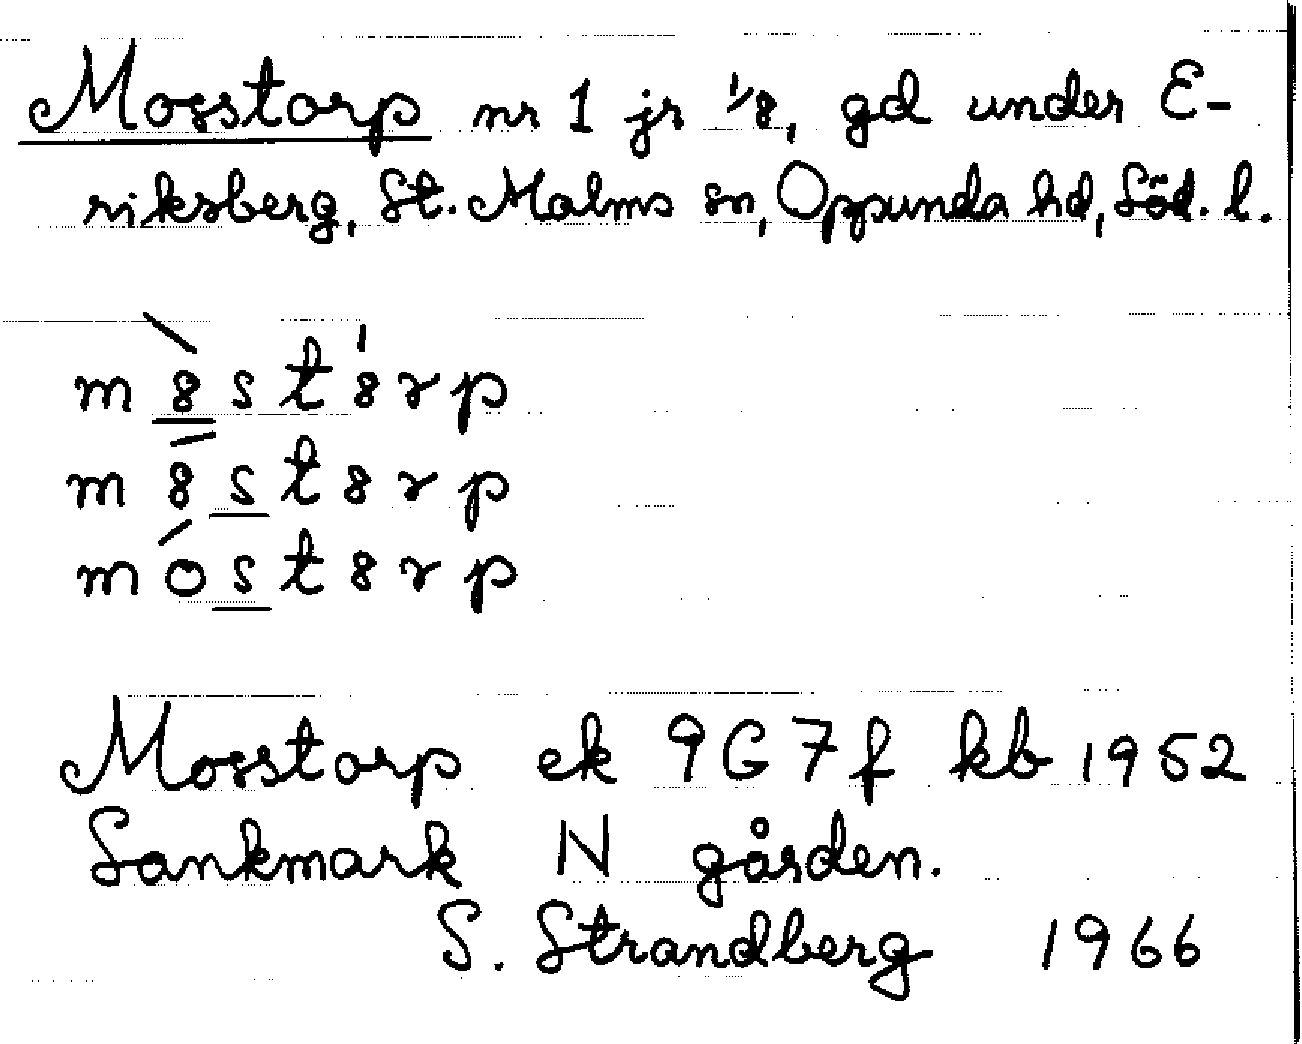 Mosstorp nr 1 jr 1/8, gd under E-
riksberg, St. Malms sn, Oppunda hd, Söd. l.
m8st8rp
m8st8rp
most8rp
Mosstorp ek 9G7f kb 1952
Sankmark N gården.
S. Strandberg 1966